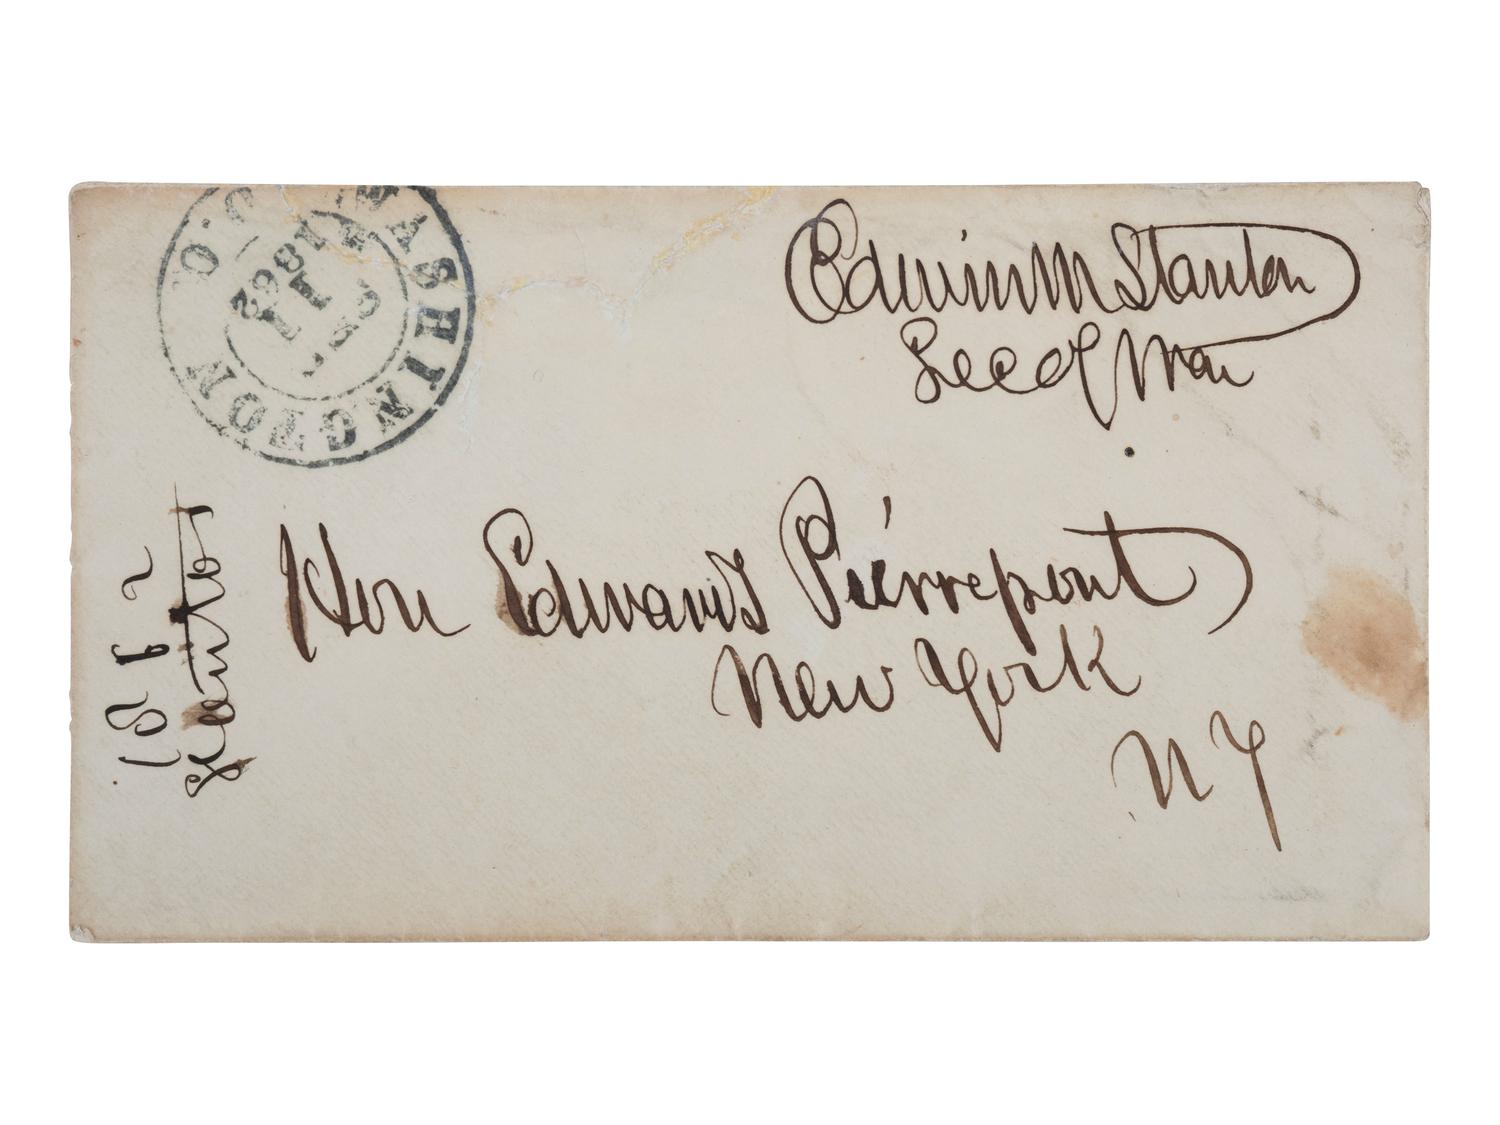 WASHINGTON D.C.
11
1862
Edwin M Stanton
Sec of War
Hon Edwards Pierrepont
New York
N Y
1862
Stanton